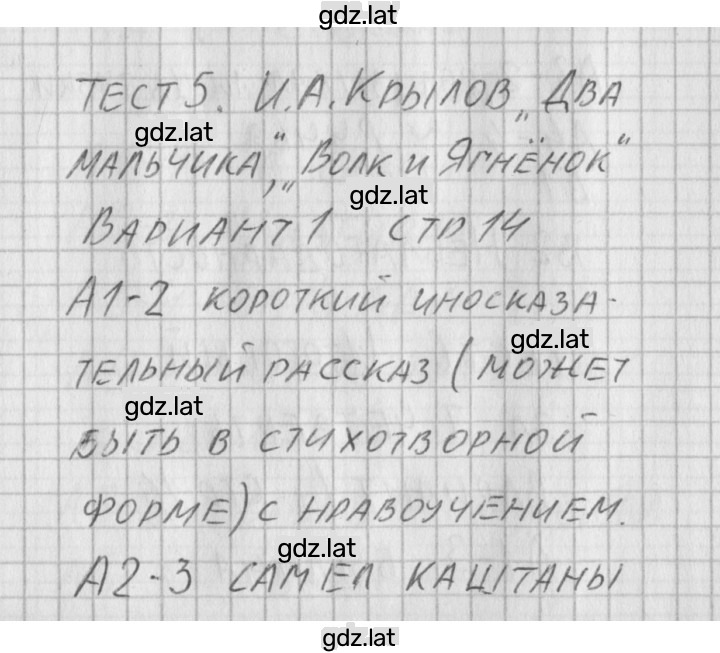 gdz.lat
ТЕСТ 5. И.А. КРЫЛОВ „ДВА
gdz.lat
МАЛЬЧИКА“, „ВОЛК И ЯГНЁНОК“
gdz.lat
ВАРИАНТ 1 СТР 14
А1-2 КОРОТКИЙ ИНОСКАЗА-
gdz.lat
ТЕЛЬНЫЙ РАССКАЗ (МОЖЕТ
gdz.lat
БЫТЬ В СТИХОТВОРНОЙ
ФОРМЕ) С НРАВОУЧЕНИЕМ.
gdz.lat
А2-3 САМ ЕЛ КАШТАНЫ
gdz.lat